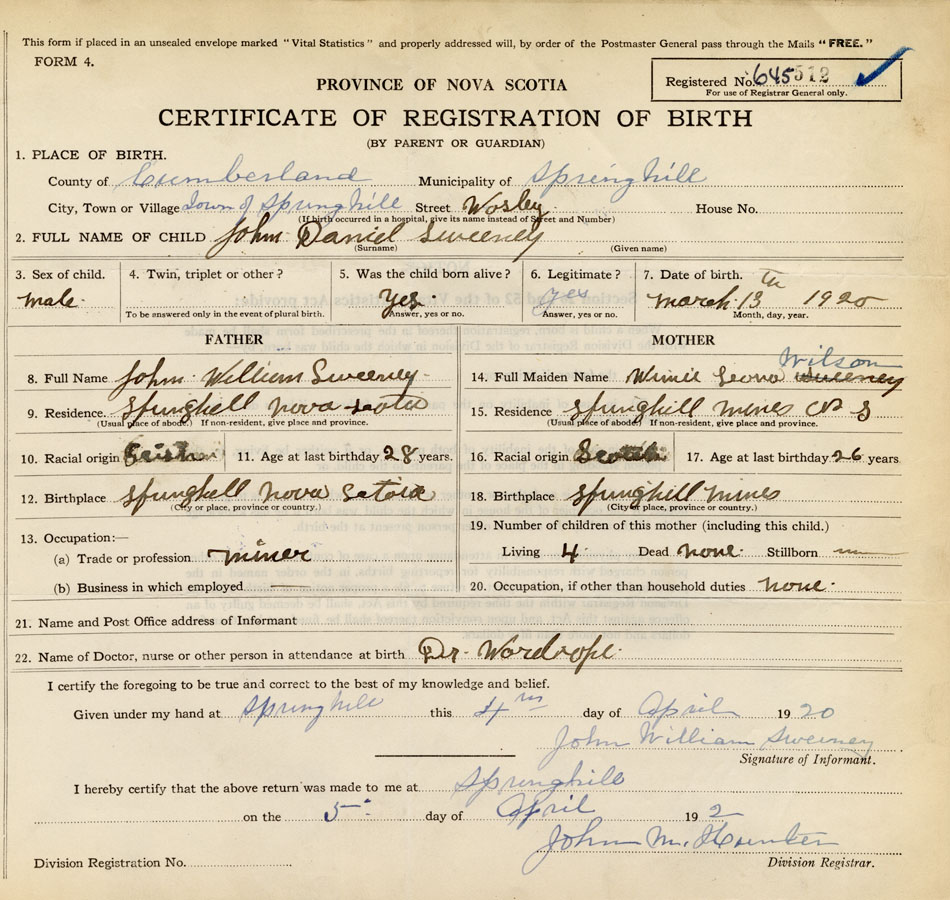 This form if placed in an unsealed envelope marked "Vital Statistics" and properly addressed will, by order of the Postmaster General pass through the Mails "FREE."
FORM 4.
Registered No. 645512
For use of Registrar General only.
PROVINCE OF NOVA SCOTIA
CERTIFICATE OF REGISTRATION OF BIRTH
(BY PARENT OR GUARDIAN)
1. PLACE OF BIRTH.
County of Cumberland Municipality of Springhill
City, Town or Village Town of Springhill Street Wosley House No.
(If birth occurred in a hospital, give its name instead of Street and Number)
2. FULL NAME OF CHILD John Daniel Sweeney
(Surname) (Given name)
3. Sex of child. 4. Twin, triplet or other? 5. Was the child born alive? 6. Legitimate? 7. Date of birth.
male Yes yes March 13th 1920
To be answered only in the event of plural birth. Answer, yes or no. Answer, yes or no. Month, day, year.
FATHER MOTHER
8. Full Name John William Sweeney
9. Residence. Springhill Nova Scotia
(Usual place of abode.) If non-resident, give place and province.
10. Racial origin 11. Age at last birthday 28 years.
12. Birthplace Springhill Nova Scotia
(City or place, province or country.)
13. Occupation:—
(a) Trade or profession miner
(b) Business in which employed
14. Full Maiden Name Leona Sweeney Wilson
15. Residence Springhill mines N S
(Usual place of abode.) If non-resident, give place and province.
16. Racial origin Scotch 17. Age at last birthday 26 years
18. Birthplace Springhill mines
(City or place, province or country.)
19. Number of children of this mother (including this child.)
Living 4 Dead none Stillborn
20. Occupation, if other than household duties none
21. Name and Post Office address of Informant
22. Name of Doctor, nurse or other person in attendance at birth Dr. Wardrope
I certify the foregoing to be true and correct to the best of my knowledge and belief.
Given under my hand at Springhill this 4th day of April 1920
John William Sweeney
Signature of Informant.
I hereby certify that the above return was made to me at Springhill
on the 5 day of April 192
John M. Hunter
Division Registration No. Division Registrar.